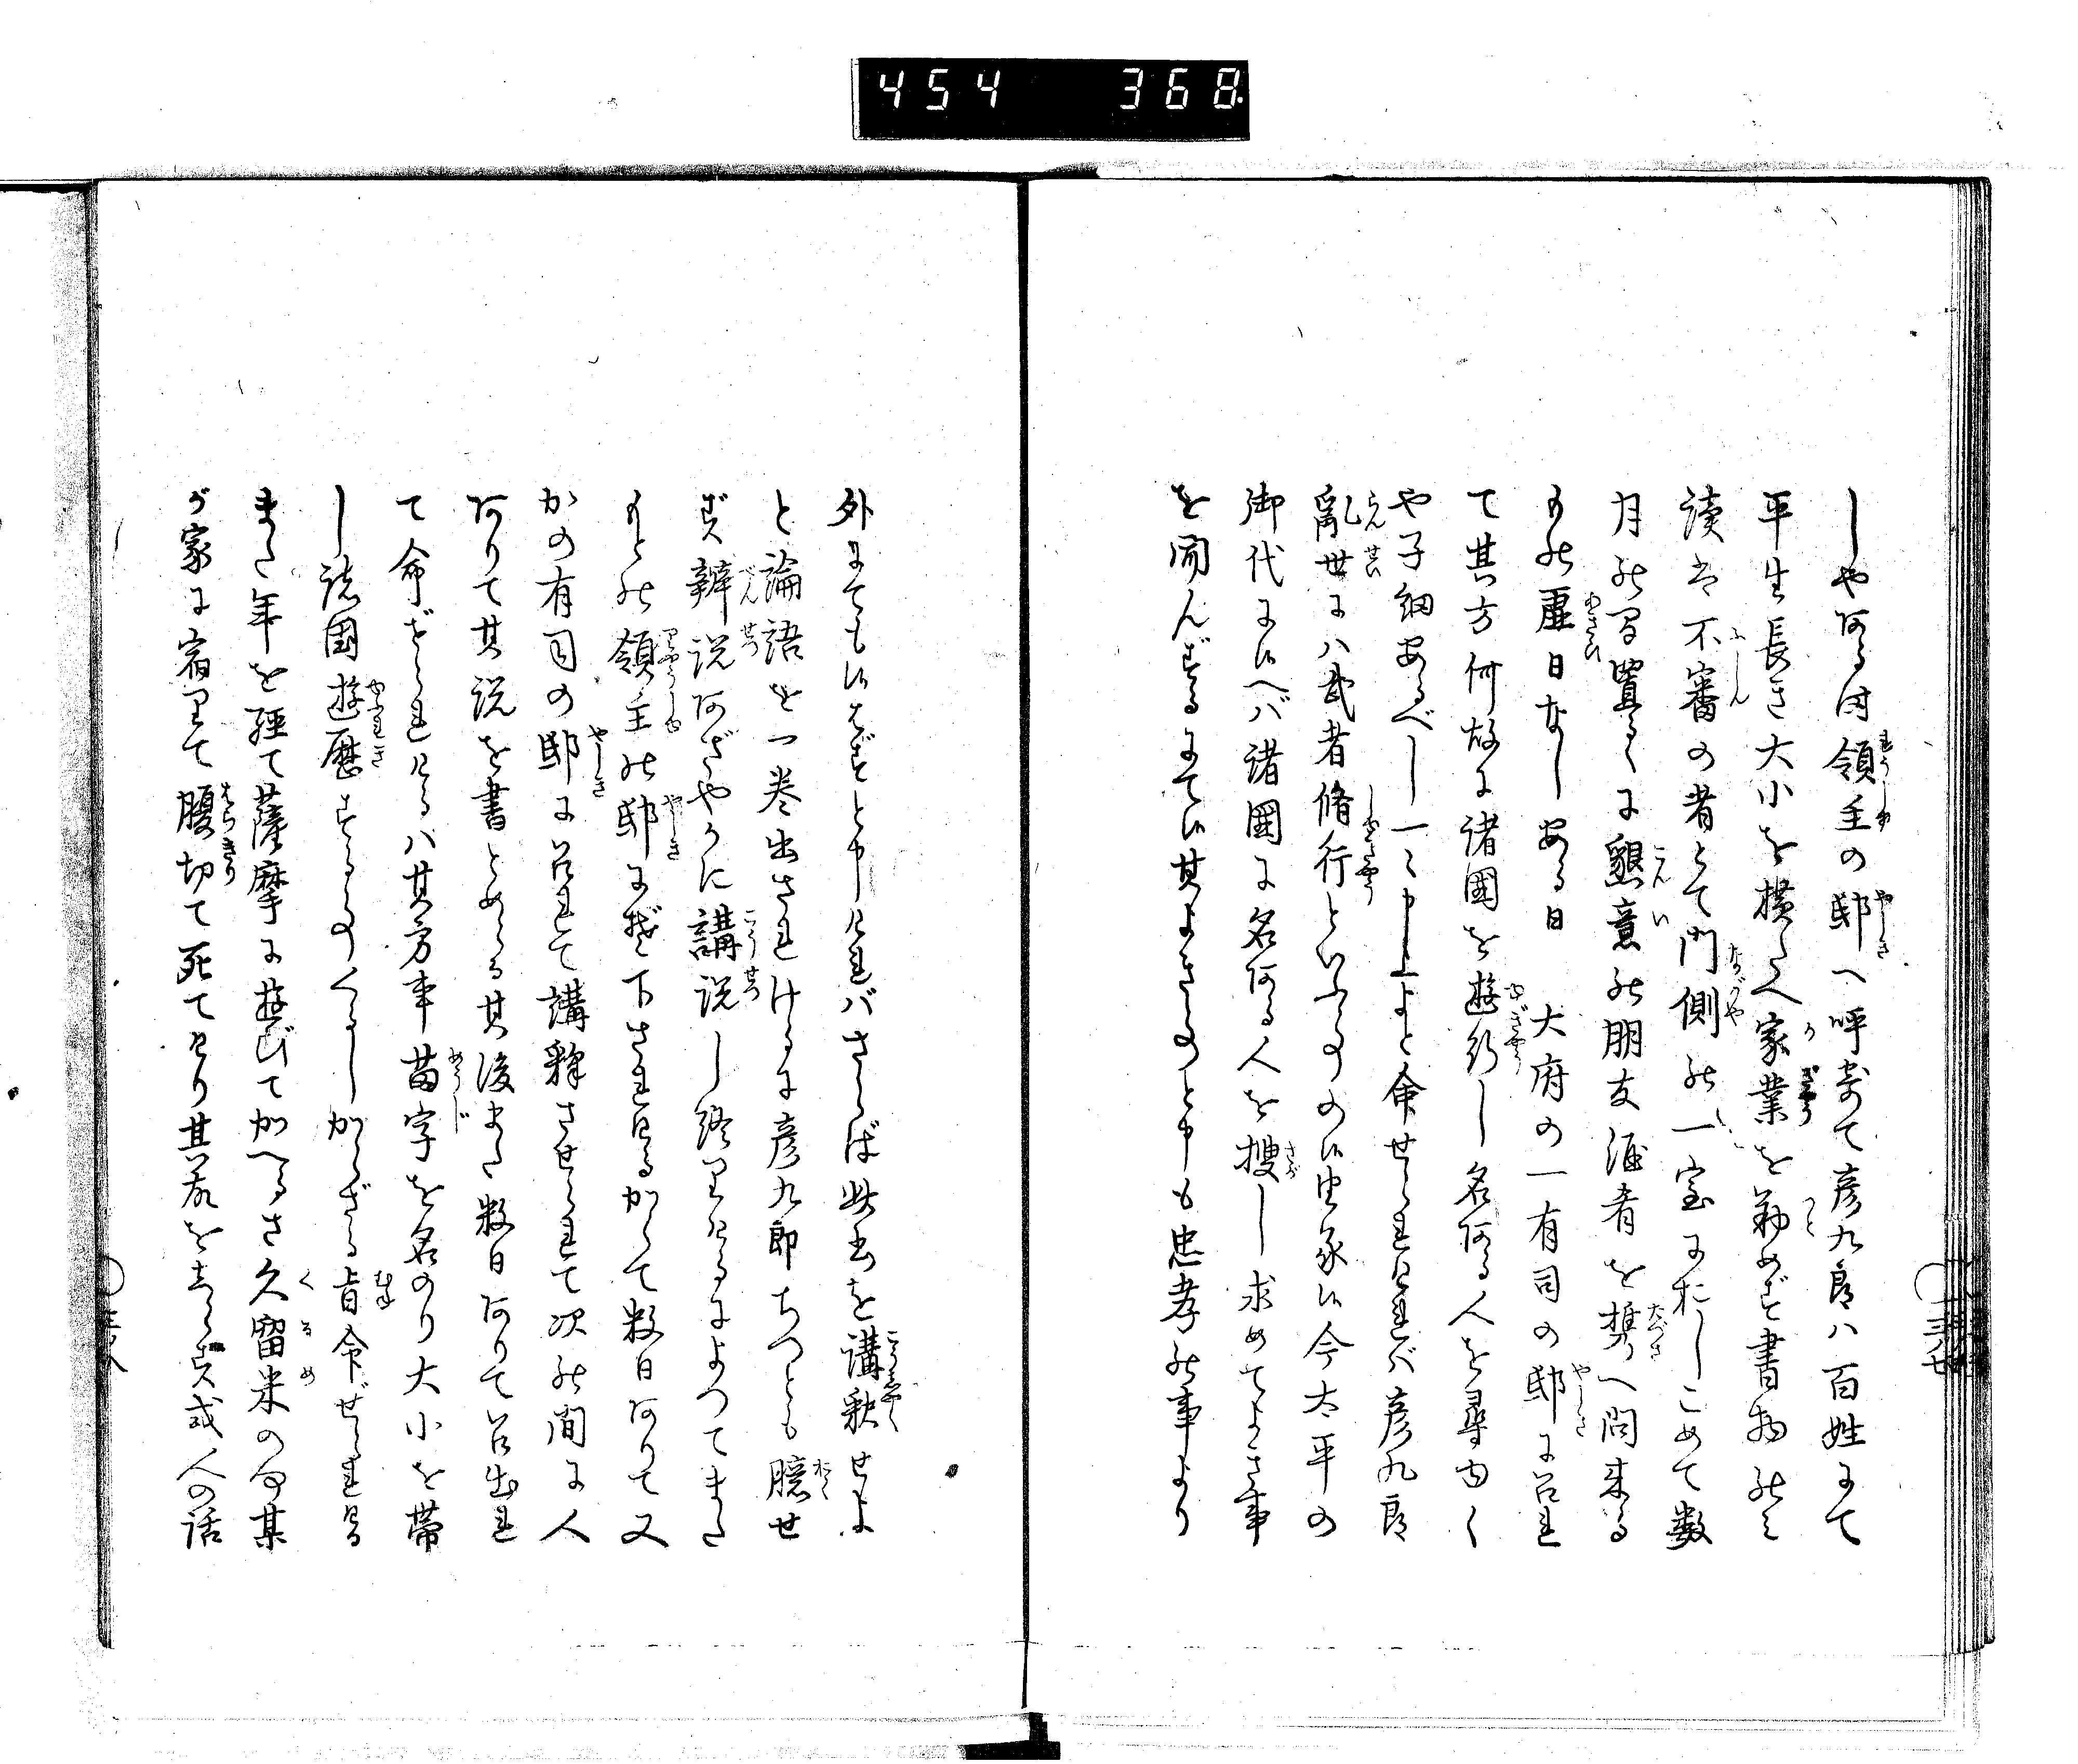 454 368
しやある時領主の邸へ呼寄て彦九郎ハ百姓にて
平生長き大小を横たへ家業を勤めず書物のミ
読は不審の者とて門側の一室におしこめて数
月の間置るゝに懇意の朋友酒肴を携へ問来る
もの虚日なしある日 大府の一有司の邸に召れ
て其方何故に諸國を遊行し名ある人を尋ゆく
や子細あるべし一々申上よと命せられけれバ彦九郎
乱世にハ武者脩行といふものゝ候由承候今太平の
御代に候へバ諸國に名ある人を捜し求めてよき事
を聞んずるにて候其よきものと申も忠孝の事より
外にても候はずと申けれバさらば此書を講釈せよ
と論語を一巻出されけるに彦九郎ちつとも臆せ
ず辨説あざやかに講説し終りけるによつてまた
もとの領主の邸に預ケ下されけるかくて数日ありて又
かの有司の邸に召れて講釋させられて次の間に人
ありて其説を書とめらる其後また数日ありて召出され
て命ぜられけるハ其方事苗字を名のり大小を帯
し諸国遊歴するものくるしからざる旨命ぜられける
また年を経て薩摩に遊びてかへるさ久留米の何某
が家に宿りて腹切て死てけり其故をしらず或人の話